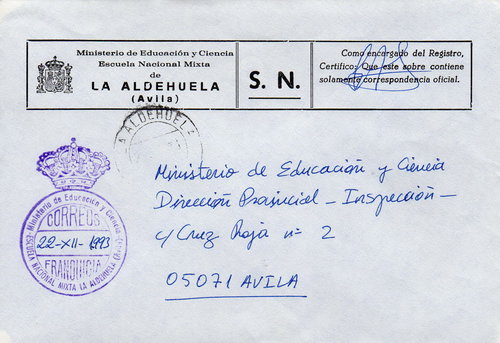 Ministerio de Educación y Ciencia
Escuela Nacional Mixta
de
LA ALDEHUELA
(Avila)
S. N.
Como encargado del Registro,
Certifico: Que este sobre contiene
solamente correspondencia oficial.
ALDEHUEL
Ministerio de Educación y Ciencia
CORREOS
22-XII-1993
FRANQUICIA
ESCUELA NACIONAL MIXTA LA ALDEHUELA (Avila)
Ministerio de Educación y Ciencia
Dirección Provincial - Inspección -
c/ Cruz Roja nº 2
05071 AVILA